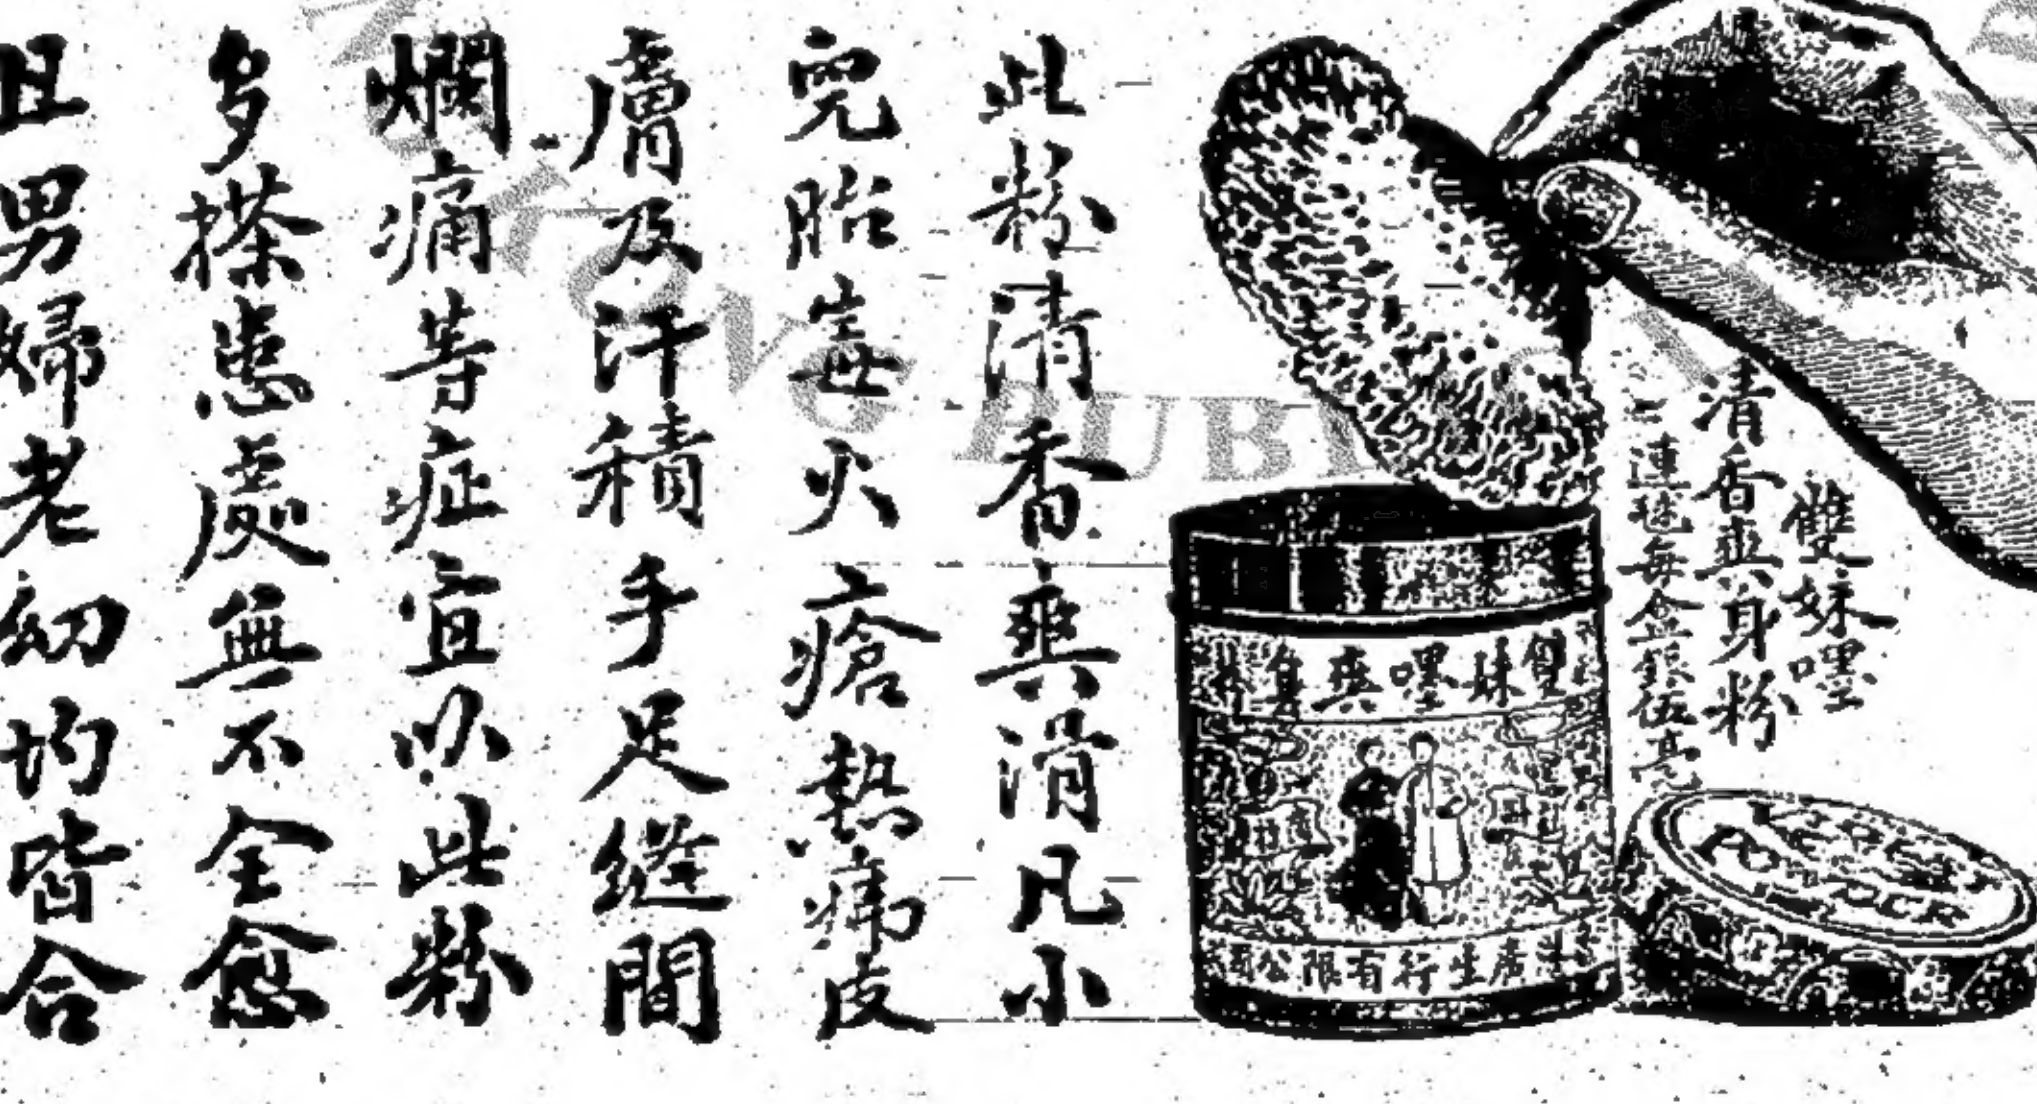 雙妹嚜
清香爽身粉
連毬每盒銀伍毫
雙妹嚜爽身粉
廣生行有限公司
POWDER
此粉清香爽滑凡小
兒胎毒火瘡熱痱皮
膚及汗積手足縫間
爛痛等症宜以此粉
多搽患處無不全愈
且男婦老幼均皆合
KONG PUBL